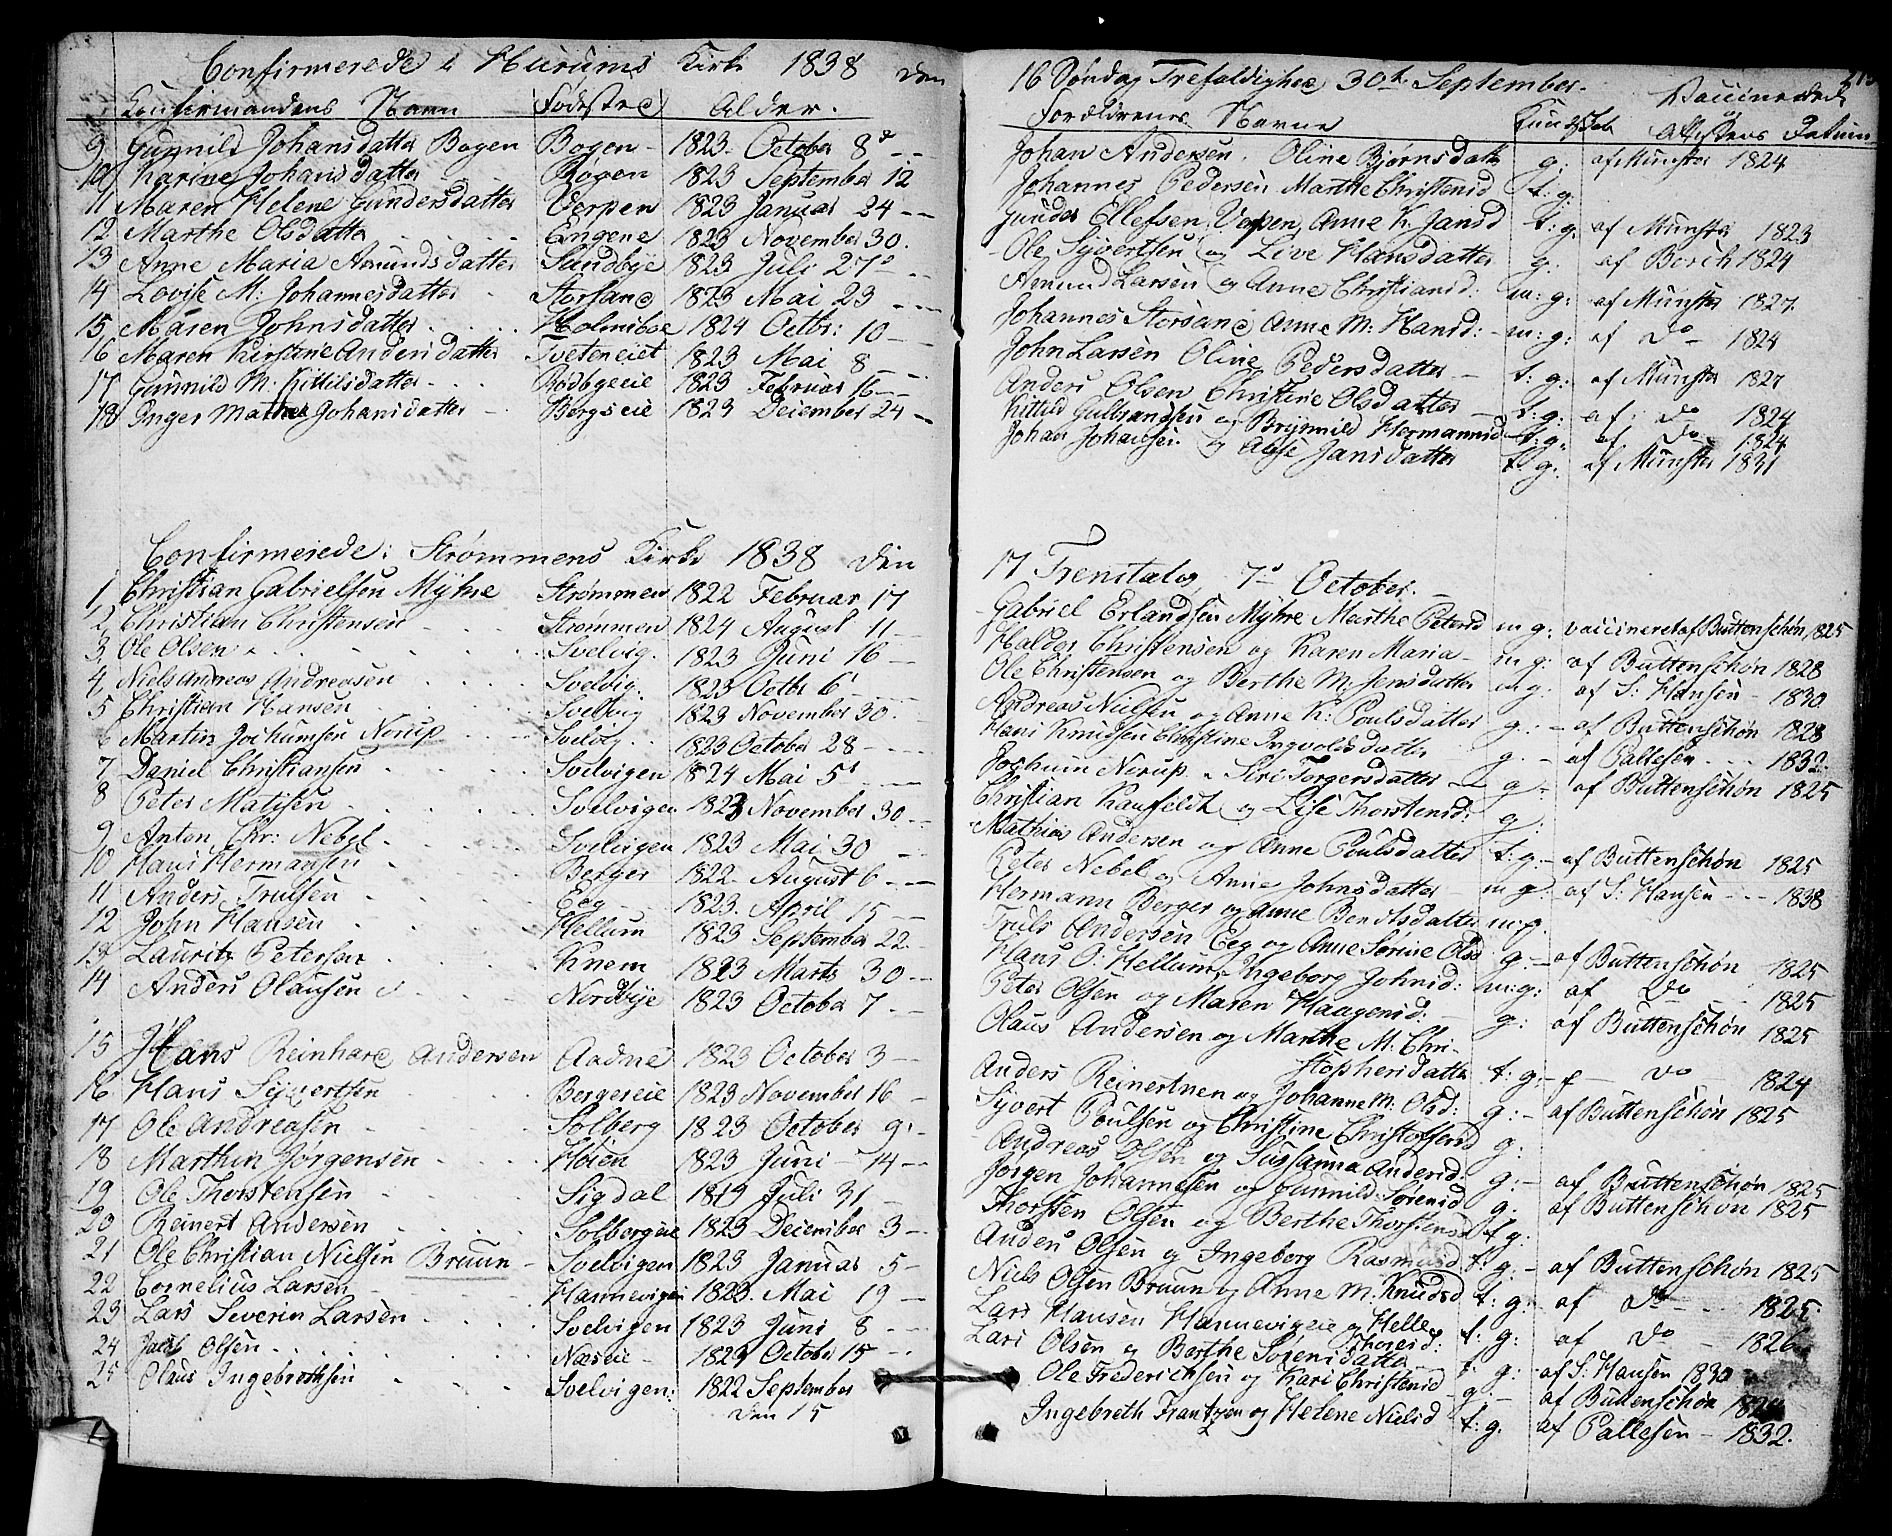 Confirmerede i Hurums Kirke 1838 den
Confirmandens Navn Fødested Alder.
9 Gunnild Johansdatter Bogen Bogen 1823 October 8de
10 Karine Johansdatter Røgen 1823 September 12
11 Maren Helene Gundersdatter Verpen 1823 Januar 24
12 Marthe Olsdatter Engene 1823 November 30.
13 Anne Maria Amundsdatter Sandbye 1823 Juli 27
14 Lovise M: Johannesdatter Storsand 1823 Mai 23
15 Maren Johnsdatter Holmsboe 1824 Octbr: 10
16 Maren Kirstine Andersdatter Tveteneiet 1823 Mai 8
17 Gunnild M. Kittilsdatter Rødbyeeie 1823 Februar 16
18 Inger Mathea Johansdatter Bergseie 1823 December 24
Confirmerede i Strømmens Kirke 1838 den
1 Christian Gabrielsen Myhre Strømmen 1822 Februar 17
2 Christian Christensen Strømmen 1824 August 11
3 Ole Olsen Svelvig. 1823 Juni 16
4 Niels Andreas Andreasen Svelvig. 1823 Octbr 6
5 Christian Hansen Svelvig 1823 November 30.
6 Martin Jochumsen Norup Svelvig 1823 October 28
7 Daniel Christiansen Svelvigen 1824 Mai 5
8 Peter Matisen Svelvigen 1823 November 30
9 Anton Chr: Nebel Svelvigen 1823 Mai 30
10 Hans Hermansen Berger 1822 August 6
11 Anders Trulsen Eeg 1823. April 15
12 John Hansen Hellum 1823 September 22.
13 Lauritz Petersen Knem 1823 Marts 30
14 Anders Olausen Nordbye 1823 October 7
15 Hans Reinhard Andersen Aadne 1823 October 3
16 Hans Syvertsen Bergereie 1823 November 16
17 Ole Andreasen Solberg 1823 October 9
18 Marthin Jørgensen Høien 1823 Juni 14
19 Ole Thorstensen Sigdal 1819 Juli 31
20 Reinert Andersen Solbergeie 1823 December 3
21 Ole Christian Nielsen Bruun Svelvigen 1823 Januar 5
22 Cornelius Larsen Hannevigen 1823 Mai 19
23 Lars Severin Larsen Svelvigen 1823 Juni 8
24 Jacob Olsen Næseie 1823 October 15
25 Olaus Ingebrethsen Svelvigen: 1822 September
den 15
16 Søndag Trefoldighed 30te September.
Forældrenes Navne Kundskab Vaccinerede Attestens Datum
Johan Andersen. Oline Bjørnsdatter g: af Munster 1824
Johannes Pedersen Marthe Christensd t: g.
Gunder Ellefsen Verpen, Anne K. Jansd t: g. af Munster 1823
Ole Syvertsen og Live Hansdatter g: af Borch 1824
Amund Larsen og Anne Christiansd: m: g: af Munster 1827.
Johannes Storsand Anne M: Hansd: m: g: af Do 1824
John Larsen Oline Pedersdatter t: g: af Munster 1827
Anders Olsen Christine Olsdatter t: g: af Do 1824
Kittild Gulbrandsen og Brynnild Hermannsd t: g. af. Do. 1824
Johan Johansen og Alise Jansdatter t: g: af Munster 1831
17 Trinitatis 7de October.
Gabriel Erlandsen Myhre Marthe Petersd m g: vaccineret af Buttenschøn 1825
Halder Christensen og Karen Maria m g: af Buttenschøn 1828
Ole Christensen og Berthe M: Jensdatter m g: af S: Hansen 1830
Andreas Nielsen og Anne K: Poulsdatter g: af Buttenschøn 1828
Hans Knudsen Christine Ingvolds datter g. af Pallesen 1832
Jochum Norup. Siri Torgersdatter g: af Buttenschøn 1825
Christian Kaufeldt og Lise Thorstensd: g:
Mathias Andersen og Anne Poulsdatter t: g: af Buttenschøn 1825
Peter Nebel og Anne Johnsdatter m g. af S: Hansen 1838
Hermann Berger og Anne Bentsdatter m: g.
Truls Andersen Eeg og Anne Sorine Olsd g: af Buttenschøn 1825
Hans O: Hellum, Ingeborg Johnsd: m: g: af Do 1825
Peter Olsen og Maren Haagensd: g: af Buttenschøn 1825
Olaus Andersen og Marthe M: Chri-
stophersdatter t: g: Do 1824
Anders Reinertsen og Johanne M: Olsd: g: af Buttenschøn 1825
Syvert Poulsen og Christine Christoffersd g:
Andreas Olsen og Susanna Andersd: g: af Buttenschøn 1825
Jørgen Johannesen og Gunnild Sørensd g. af Buttenschøn 1825
Thorsten Olsen og Berthe Thorstensd t g:
Anders Olsen og Ingeborg Rasmusd t: g: af Buttenschøn 1825
Niels Olsen Bruun og Anne M. Knudsd t: g: af Do 1825
Lars Hansen Hannevigeie og Helle
Thorsd: t: g: af Do 1826
Lars Olsen og Berthe Sørensdatter t: g: af S: Hansen 1830
Ole Frederichsen og Kari Christensd g: af Buttenschøn
Ingebreth Frantzen og Helene Nielsd t: g. af Pallesen 1832.